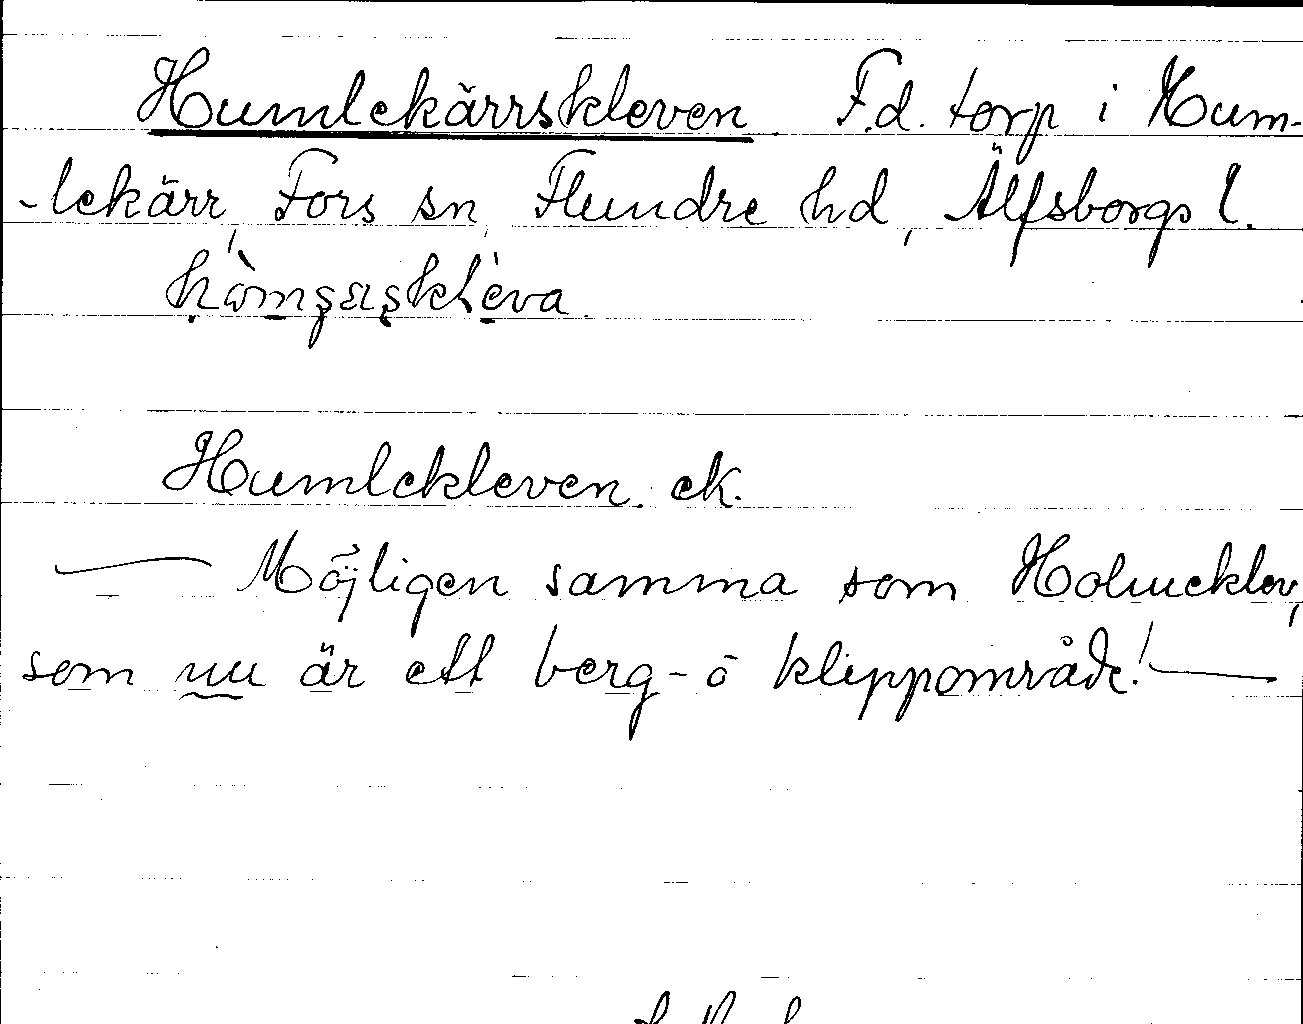 Humlekärrskleven. F.d. torp i Hum-
-lekärr, Fors sn, Flundre hd, Älfsborgs l.
Humlekleven. ek.
— Möjligen samma som Holmeklev,
som nu är ett berg- o klippområde! —